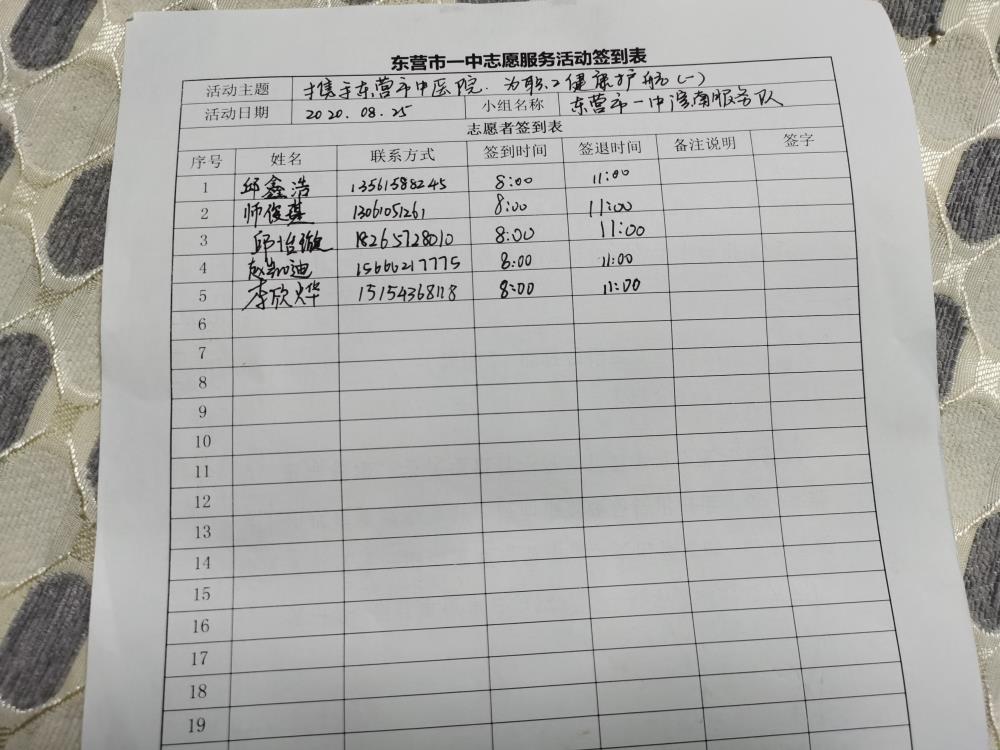 东营市一中志愿服务活动签到表
活动主题 携手东营市中医院.为职工健康护航(一)
活动日期 2020.08.25 小组名称 东营市一中滨南服务队
志愿者签到表
序号 姓名 联系方式 签到时间 签退时间 备注说明 签字
1 邱鑫浩 13561588245 8:00 11:00
2 师俊 13061051261 8:00 11:00
3 邱怡璇 18265728010 8:00 11:00
4 赵凯迪 15666217775 8:00 11:00
5 李欣烨 15154368118 8:00 11:00
6
7
8
9
10
11
12
13
14
15
16
17
18
19